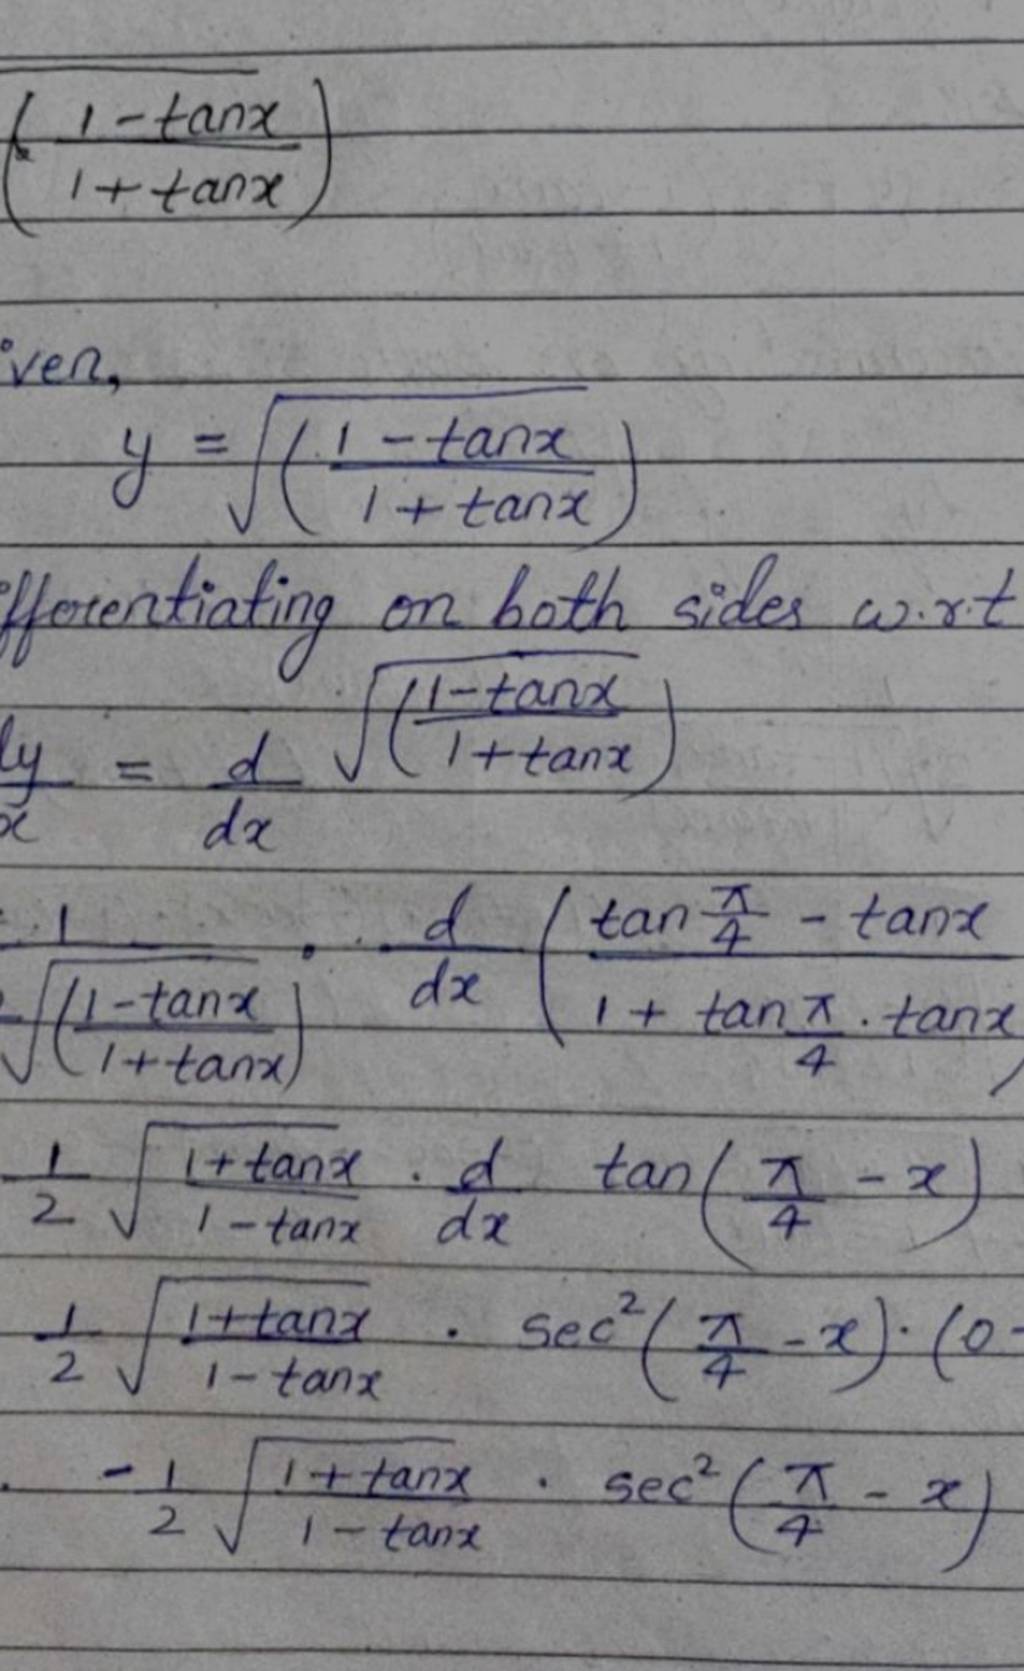 √((1-tanx)/(1+tanx))
iven,
y = √((1-tanx)/(1+tanx))
ifferentiating on both sides w.r.t
dy/x = d/dx √((1-tanx)/(1+tanx))
1/√((1-tanx)/(1+tanx)) · d/dx ((tan π/4 - tanx)/(1 + tan π/4 . tanx))
1/2 √((1+tanx)/(1-tanx)) . d/dx tan(π/4 - x)
1/2 √((1+tanx)/(1-tanx)) . sec²(π/4 - x) . (0-
. -1/2 √((1+tanx)/(1-tanx)) . sec²(π/4 - x)